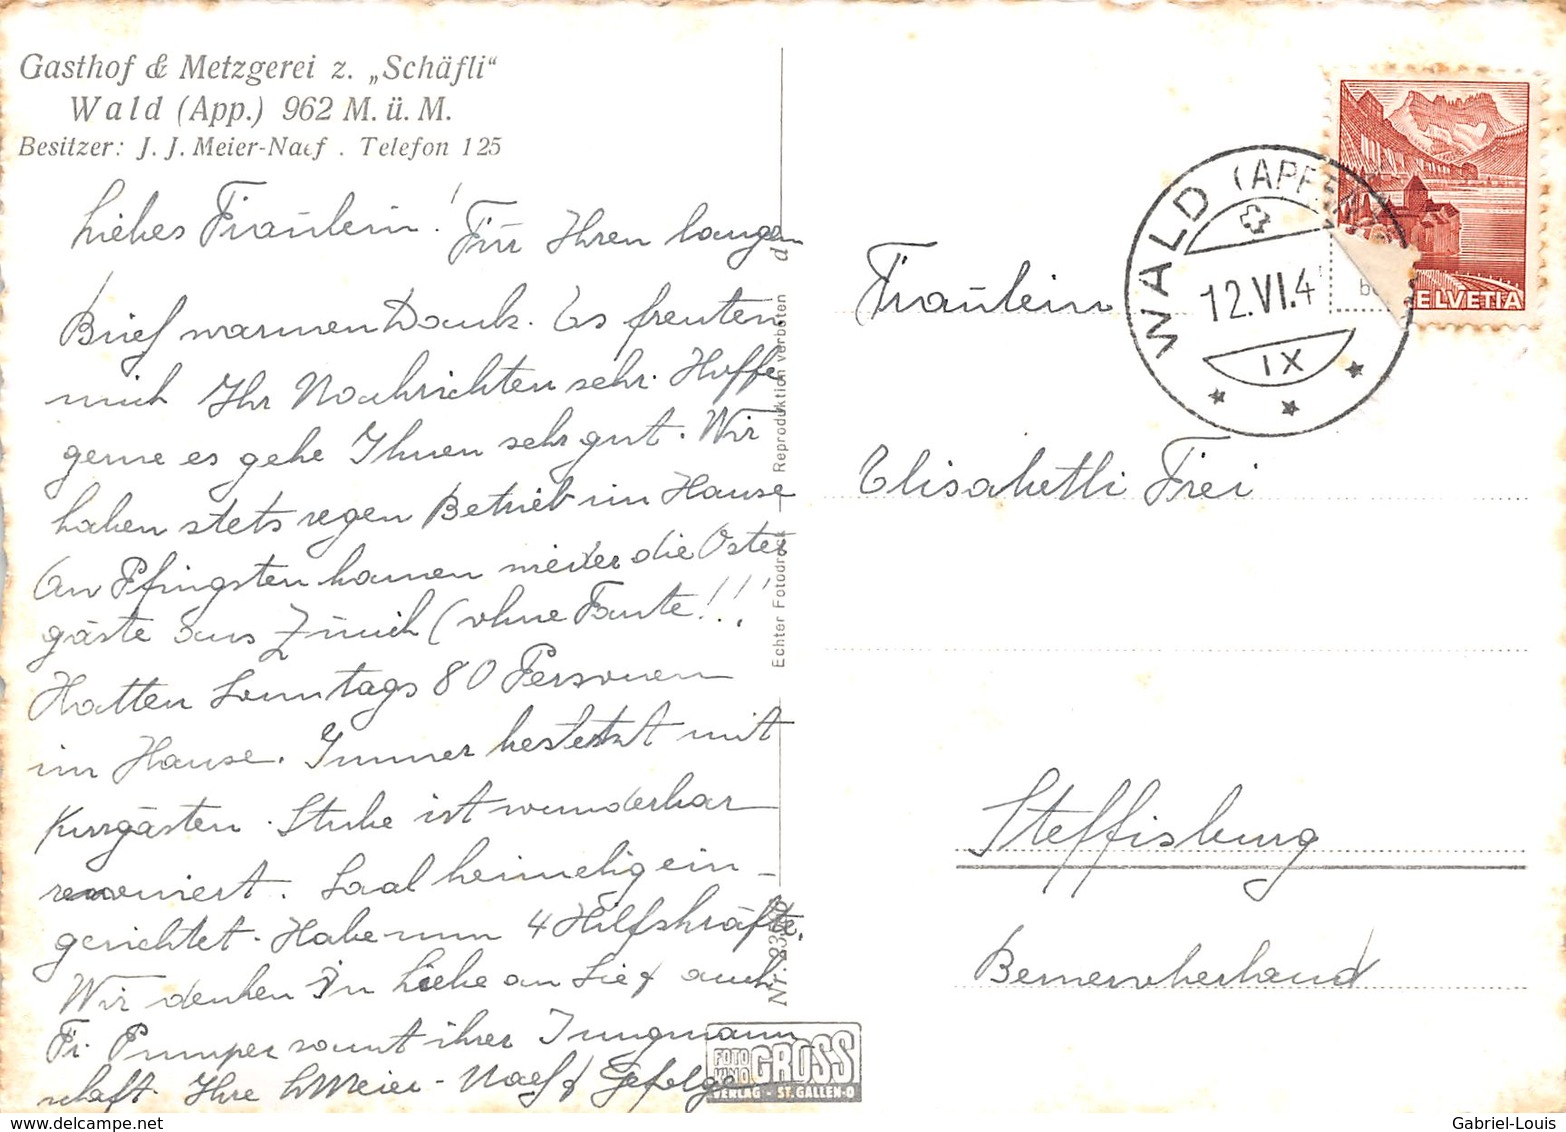 Gasthof & Metzgerei z. „Schäfli"
Wald (App.) 962 M. ü. M.
Besitzer: J. J. Meier-Naef . Telefon 125
Liebes Fräulein! Für Ihren langen
Brief warmen Dank. Es freuten
mich Ihr Nachrichten sehr. Hoffe
gerne es gehe Ihnen sehr gut. Wir
haben stets regen Betrieb im Hause
An Pfingsten kamen wieder die Oster
gäste aus Zürich (ohne Tante!!!
Hatten Sonntags 80 Personen
im Hause. Immer besetzt mit
Kurgästen. Stube ist wunderbar
renoviert. Saal heimelig ein-
gerichtet. Habe nun 4 Hilfskräfte.
Wir denken in Liebe an Sie & auch
Fr. Pumper samt ihrer Jungmann
schaft. Ihre Meier-Naef & Gefolge
Echter Fotodruck — Reproduktion verboten
Nr.
FOTO KINO GROSS
VERLAG - ST. GALLEN-O
WALD (APPENZ
12.VI.4
IX
HELVETIA
Fräulein
Elisabethli Frei
Steffisburg
Berneroberland
delcampe.net
Gabriel-Louis